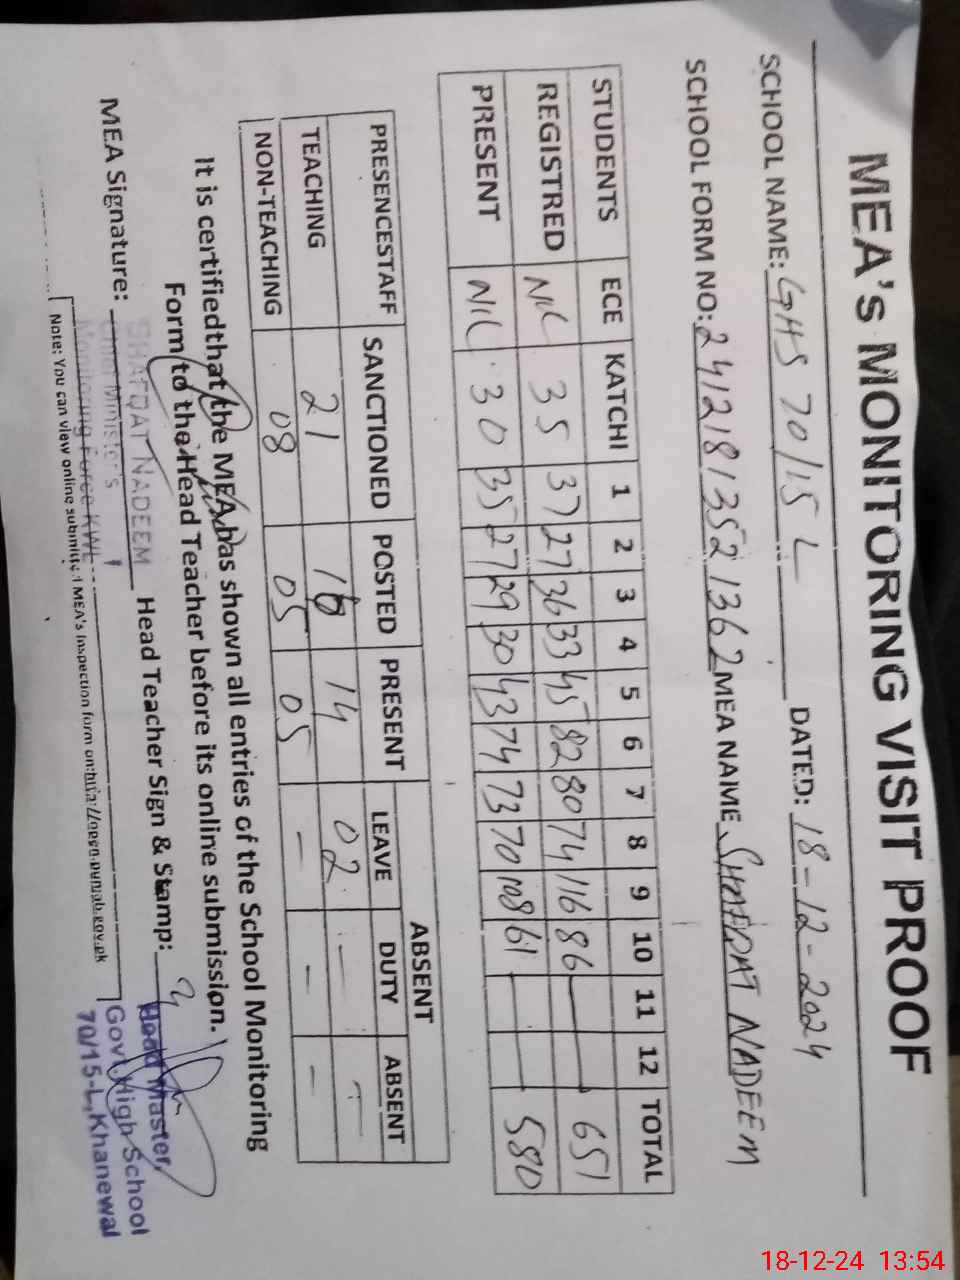 MEA's MONITORING VISIT PROOF
SCHOOL NAME: GHS 70/15 L DATED: 18-12-2024
SCHOOL FORM NO: 24121813521362 MEA NAME SHAFQAT NADEEM
STUDENTS ECE KATCHI 1 2 3 4 5 6 7 8 9 10 11 12 TOTAL
REGISTRED NIL 35 37 27 36 33 45 82 80 74 116 86 651
PRESENT NIL 30 35 27 29 30 43 74 73 70 108 61 580
ABSENT
PRESENCESTAFF SANCTIONED POSTED PRESENT LEAVE DUTY ABSENT
TEACHING 21 16 14 02 - -
NON-TEACHING 08 05 05 - - -
It is certifiedthat the MEA has shown all entries of the School Monitoring
Form to the Head Teacher before its online submission.
MEA Signature: Head Teacher Sign & Stamp:
SHAFQAT NADEEM
Chief Minister's
Monitoring Force KWL
Head Master,
Govt. High School
70/15-L, Khanewal
Note: You can view online submitted MEA's Inspection form on:http://open.punjab.gov.pk
18-12-24 13:54